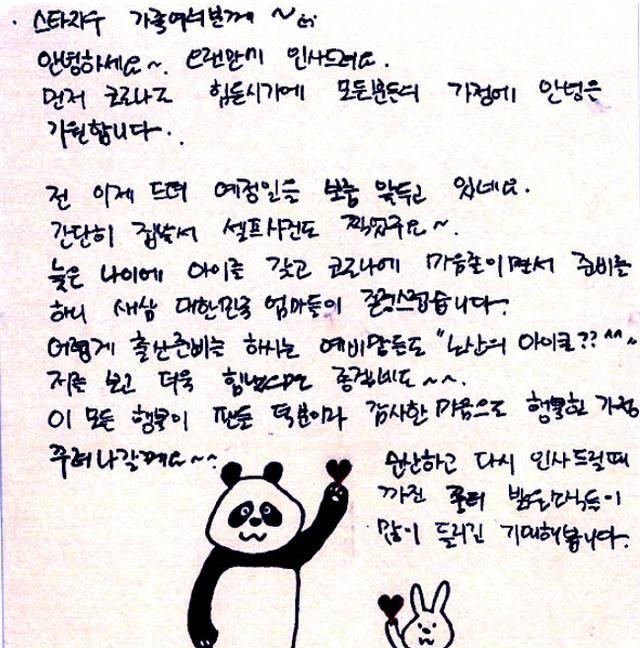 스타자수 가족여러분께 ~
안녕하세요~. 오랜만에 인사드려요.
먼저 코로나로 힘든시기에 모든분들의 가정에 안녕을
기원합니다.
전 이제 드뎌 예정일을 보름 앞두고 있네요.
간단히 집에서 셀프사진도 찍었구요~.
늦은 나이에 아이를 갖고 코로나에 마음졸이면서 준비를
하니 새삼 대한민국 엄마들이 존경스럽습니다.
어렵게 출산준비를 하시는 예비맘들도 "노산의 아이콘?? ^^"
저를 보고 더욱 힘냈으면 좋겠네요~~.
이 모든 행복이 팬분 덕분이라 감사한 마음으로 행복한 가정
꾸려나갈께요~~
순산하고 다시 인사드릴때
까진 밝은소식들이
많이 들리길 기대해봅니다.